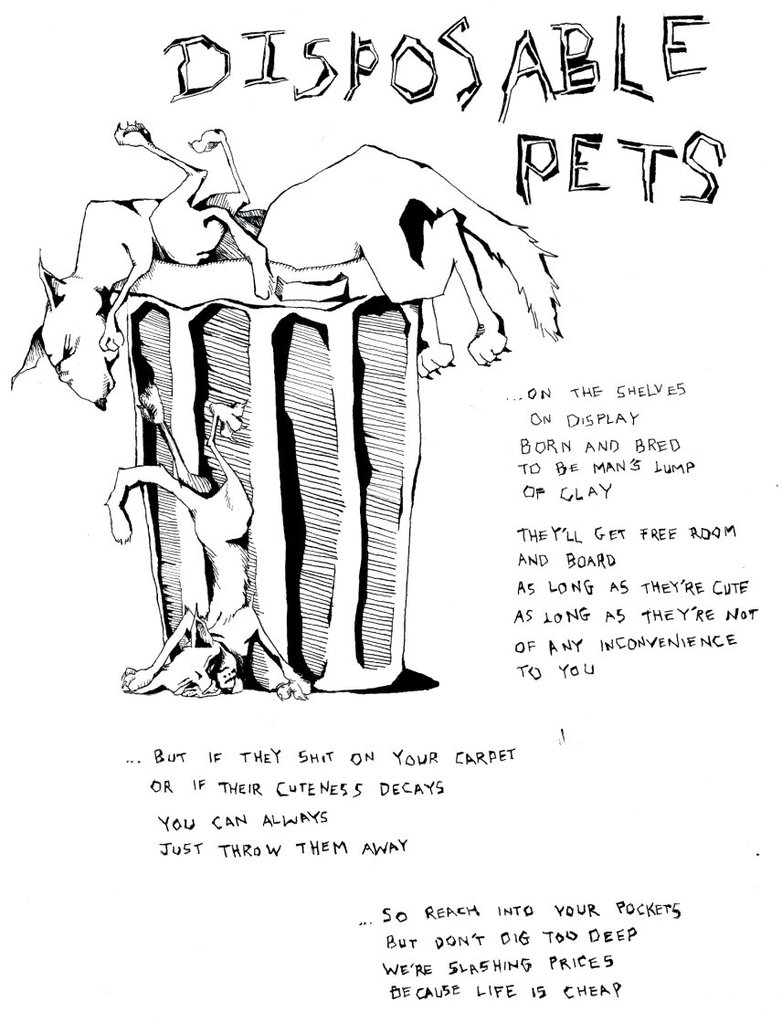 DISPOSABLE
PETS
...ON THE SHELVES
ON DISPLAY
BORN AND BRED
TO BE MAN'S LUMP
OF CLAY
THEY'LL GET FREE ROOM
AND BOARD
AS LONG AS THEY'RE CUTE
AS LONG AS THEY'RE NOT
OF ANY INCONVENIENCE
TO YOU
...BUT IF THEY SHIT ON YOUR CARPET
OR IF THEIR CUTENESS DECAYS
YOU CAN ALWAYS
JUST THROW THEM AWAY
...SO REACH INTO YOUR POCKETS
BUT DON'T DIG TOO DEEP
WE'RE SLASHING PRICES
BECAUSE LIFE IS CHEAP